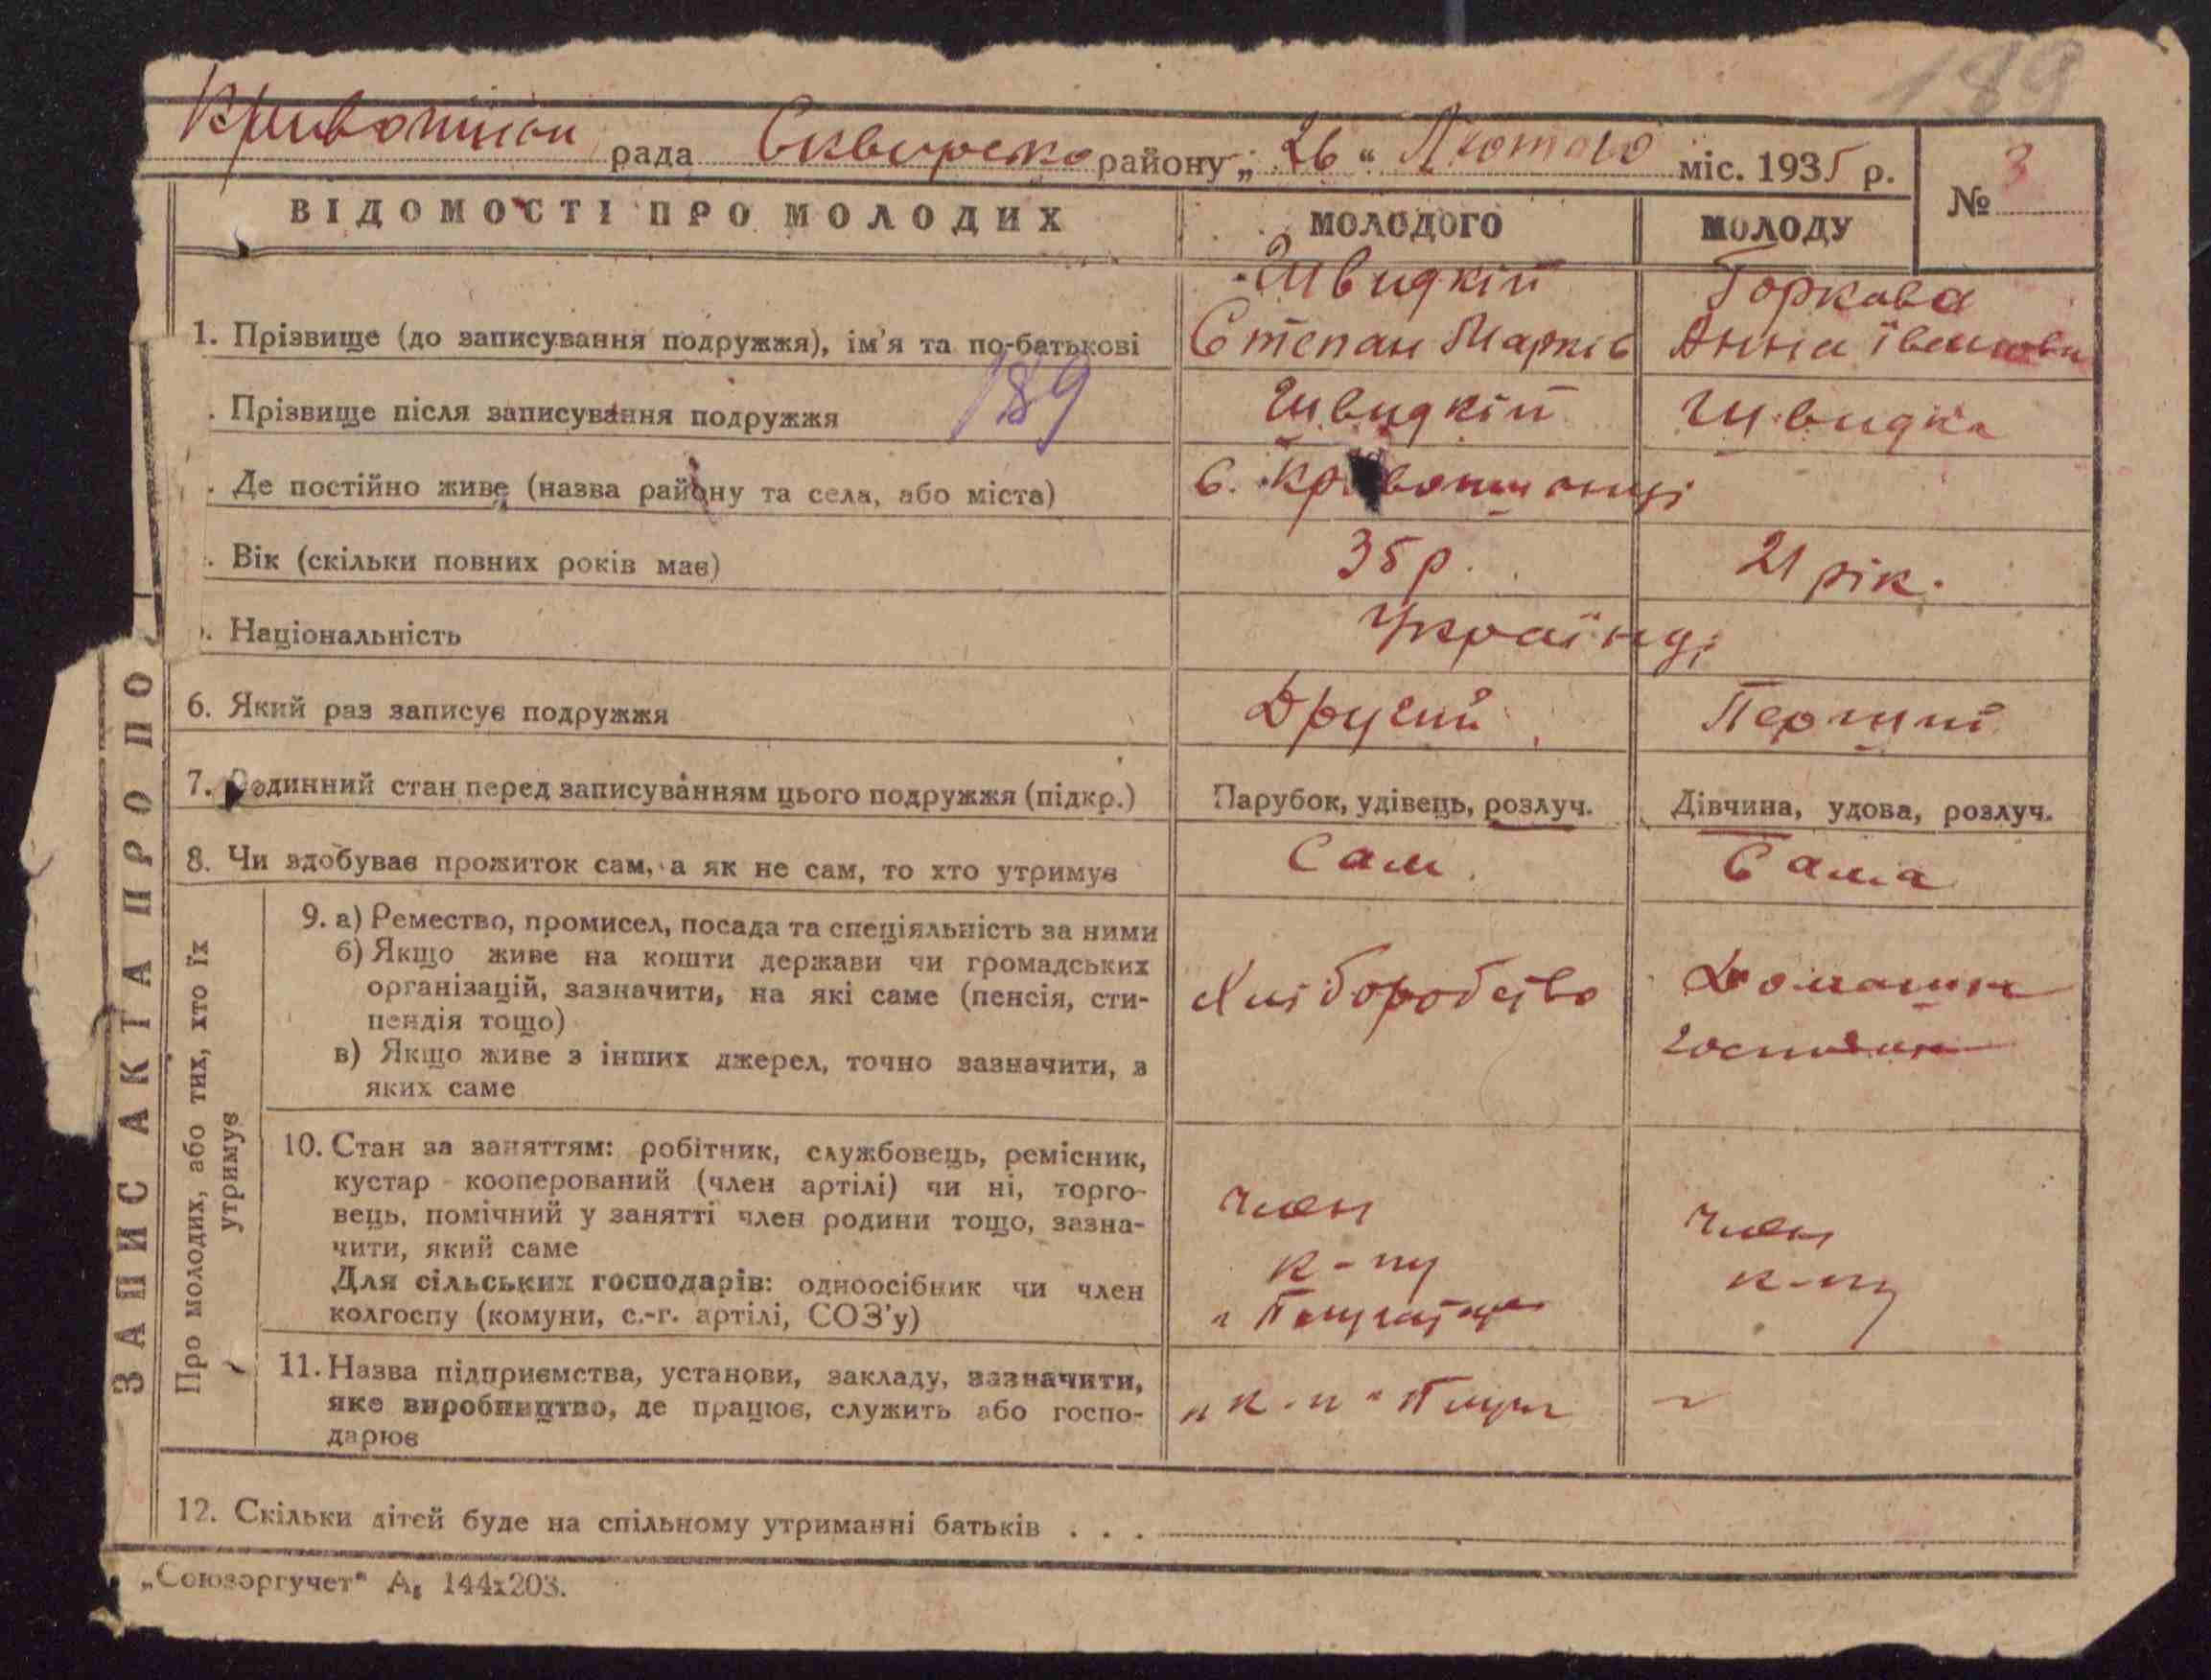 189
рада Сквирсько району „ 26 “ Лютого міс. 1935 р.
№ 3
ВІДОМОСТІ ПРО МОЛОДИХ
МОЛОДОГО
МОЛОДУ
1. Прізвище (до записування подружжя), ім'я та по-батькові
Швидкій
Степан Марків
Горкава
Анна Іванова
189
. Прізвище після записування подружжя
Швидкій
Швидка
. Де постійно живе (назва району та села, або міста)
с. Кривошиинці
. Вік (скільки повних років має)
35 р.
21 рік.
. Національність
Українці
6. Який раз записує подружжя
Другий
Перший
7. Родинний стан перед записуванням цього подружжя (підкр.)
Парубок, удівець, розлуч.
Дівчина, удова, розлуч.
8. Чи здобуває прожиток сам, а як не сам, то хто утримує
Сам.
Сама
ЗАПИС АКТА ПРО ПО
Про молодих, або тих, хто їх
утримує
9. а) Ремество, промисел, посада та спеціяльність за ними
б) Якщо живе на кошти держави чи громадських
організацій, зазначити, на які саме (пенсія, сти-
пендія тощо)
в) Якщо живе з інших джерел, точно зазначити, з
яких саме
Хліборобство
Домашнє
10. Стан за заняттям: робітник, службовець, ремісник,
кустар - кооперований (член артілі) чи ні, торго-
вець, помічний у занятті член родини тощо, зазна-
чити, який саме
Для сільських господарів: одноосібник чи член
колгоспу (комуни, с.-г. артілі, СОЗ'у)
член
к-пу
член
к-пу
11. Назва підприємства, установи, закладу, зазначити,
яке виробництво, де працює, служить або госпо-
дарює
12. Скільки дітей буде на спільному утриманні батьків . . .
„Союзоргучет“ А₅ 144х203.